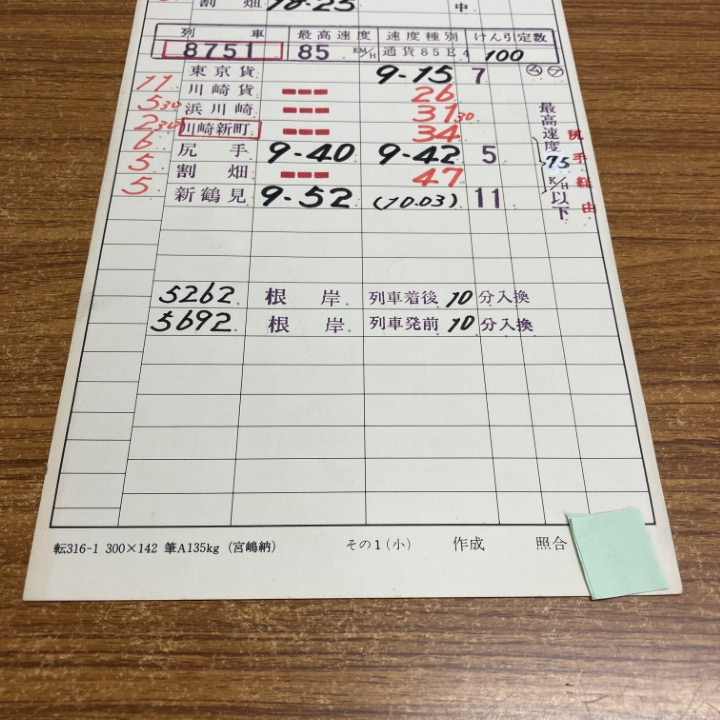 割 畑 18-25 中
列 車 最高速度 速度種別 けん引定数
8751 85 KM/H 通貨85E4 100
東京貨 9-15 7
11 川崎貨 26
5 30 浜川崎 31 30
2 30 川崎新町 34
6 尻 手 9-40 9-42 5
5 割 畑 47
5 新鶴見 9-52 (10.03) 11
最高速度75K/H以下
尻手経由
5262 根 岸 列車着後 10 分入換
5692 根 岸 列車発前 10 分入換
転316-1 300×142 筆A135kg (宮嶋納) その1(小) 作成 照合